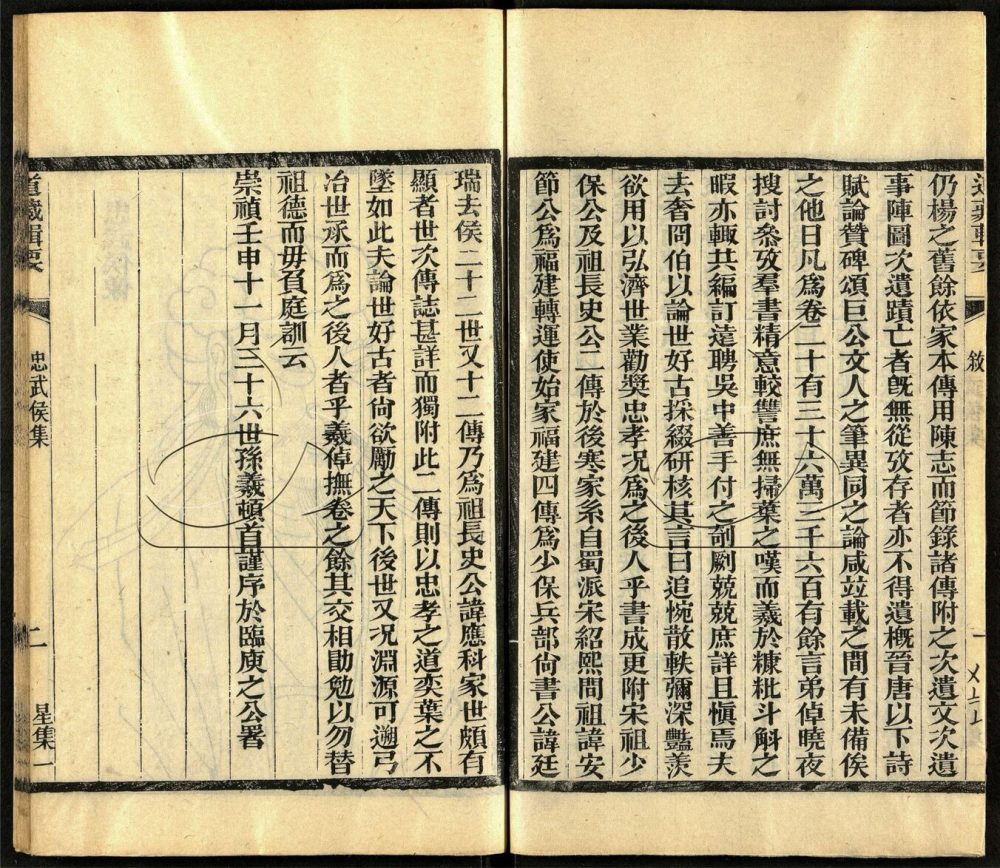 仍楊之舊餘依家本傳用陳志而節錄諸傳附之次遺文次遺
事陣圖次遺蹟亡者旣無從攷存者亦不得遺槪晉唐以下詩
賦論贊碑頌巨公文人之筆異同之論咸竝載之間有未備俟
之他日凡爲卷二十有三十六萬三千六百有餘言弟倬曉夜
搜討叅攷羣書精意較讐庶無掃葉之嘆而羲於糠粃斗斛之
暇亦輙共編訂遠聘吳中善手付之剞劂兢兢庶詳且愼焉夫
去奢問伯以論世好古採綴研核其言曰追惋散軼彌深豔羨
欲用以弘濟世業勸奬忠孝况爲之後人乎書成更附宋祖少
保公及祖長史公二傳於後寒家系自蜀派宋紹熙間祖諱安
節公爲福建轉運使始家福建四傳爲少保兵部尙書公諱廷
敘
一
瑞去侯二十二世又十二傳乃爲祖長史公諱應科家世頗有
顯者世次傳誌甚詳而獨附此二傳則以忠孝之道奕葉之不
墜如此夫論世好古者尙欲勵之天下後世又况淵源可遡弓
冶世承而爲之後人者乎羲倬撫卷之餘其交相勖勉以勿替
祖德而毋負庭訓云
崇禎壬申十一月三十六世孫羲頓首謹序於臨庾之公署
道藏輯要
忠武侯集
二
星集一